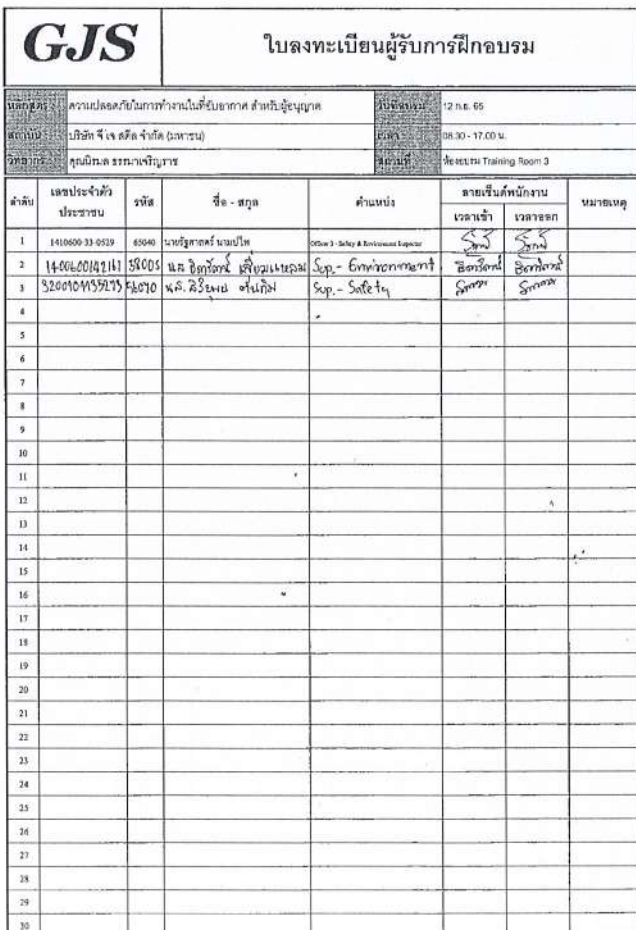 GJS
ใบลงทะเบียนผู้รับการฝึกอบรม
หลักสูตร ความปลอดภัยในการทำงานในที่อับอากาศ สำหรับผู้อนุญาต วันที่อบรม 12 ก.ย. 65
สถาบัน บริษัท จี เจ สตีล จำกัด (มหาชน) เวลา 08.30 - 17.00 น.
วิทยากร คุณนิรมล ธรรมาเจริญราช สถานที่ ห้องอบรม Training Room 3
ลำดับ เลขประจำตัวประชาชน รหัส ชื่อ - สกุล ตำแหน่ง ลายเซ็นต์พนักงาน หมายเหตุ
เวลาเข้า เวลาออก
1 1410600-33-0529 65040 นายรัฐศาสตร์ นามปโพ Officer 3 - Safety & Environment Inspector
2 1400600142161 58005 น.ส. Sup.- Environment
3 56070 น.ส. Sup.- Safety
4
5
6
7
8
9
10
11
12
13
14
15
16
17
18
19
20
21
22
23
24
25
26
27
28
29
30